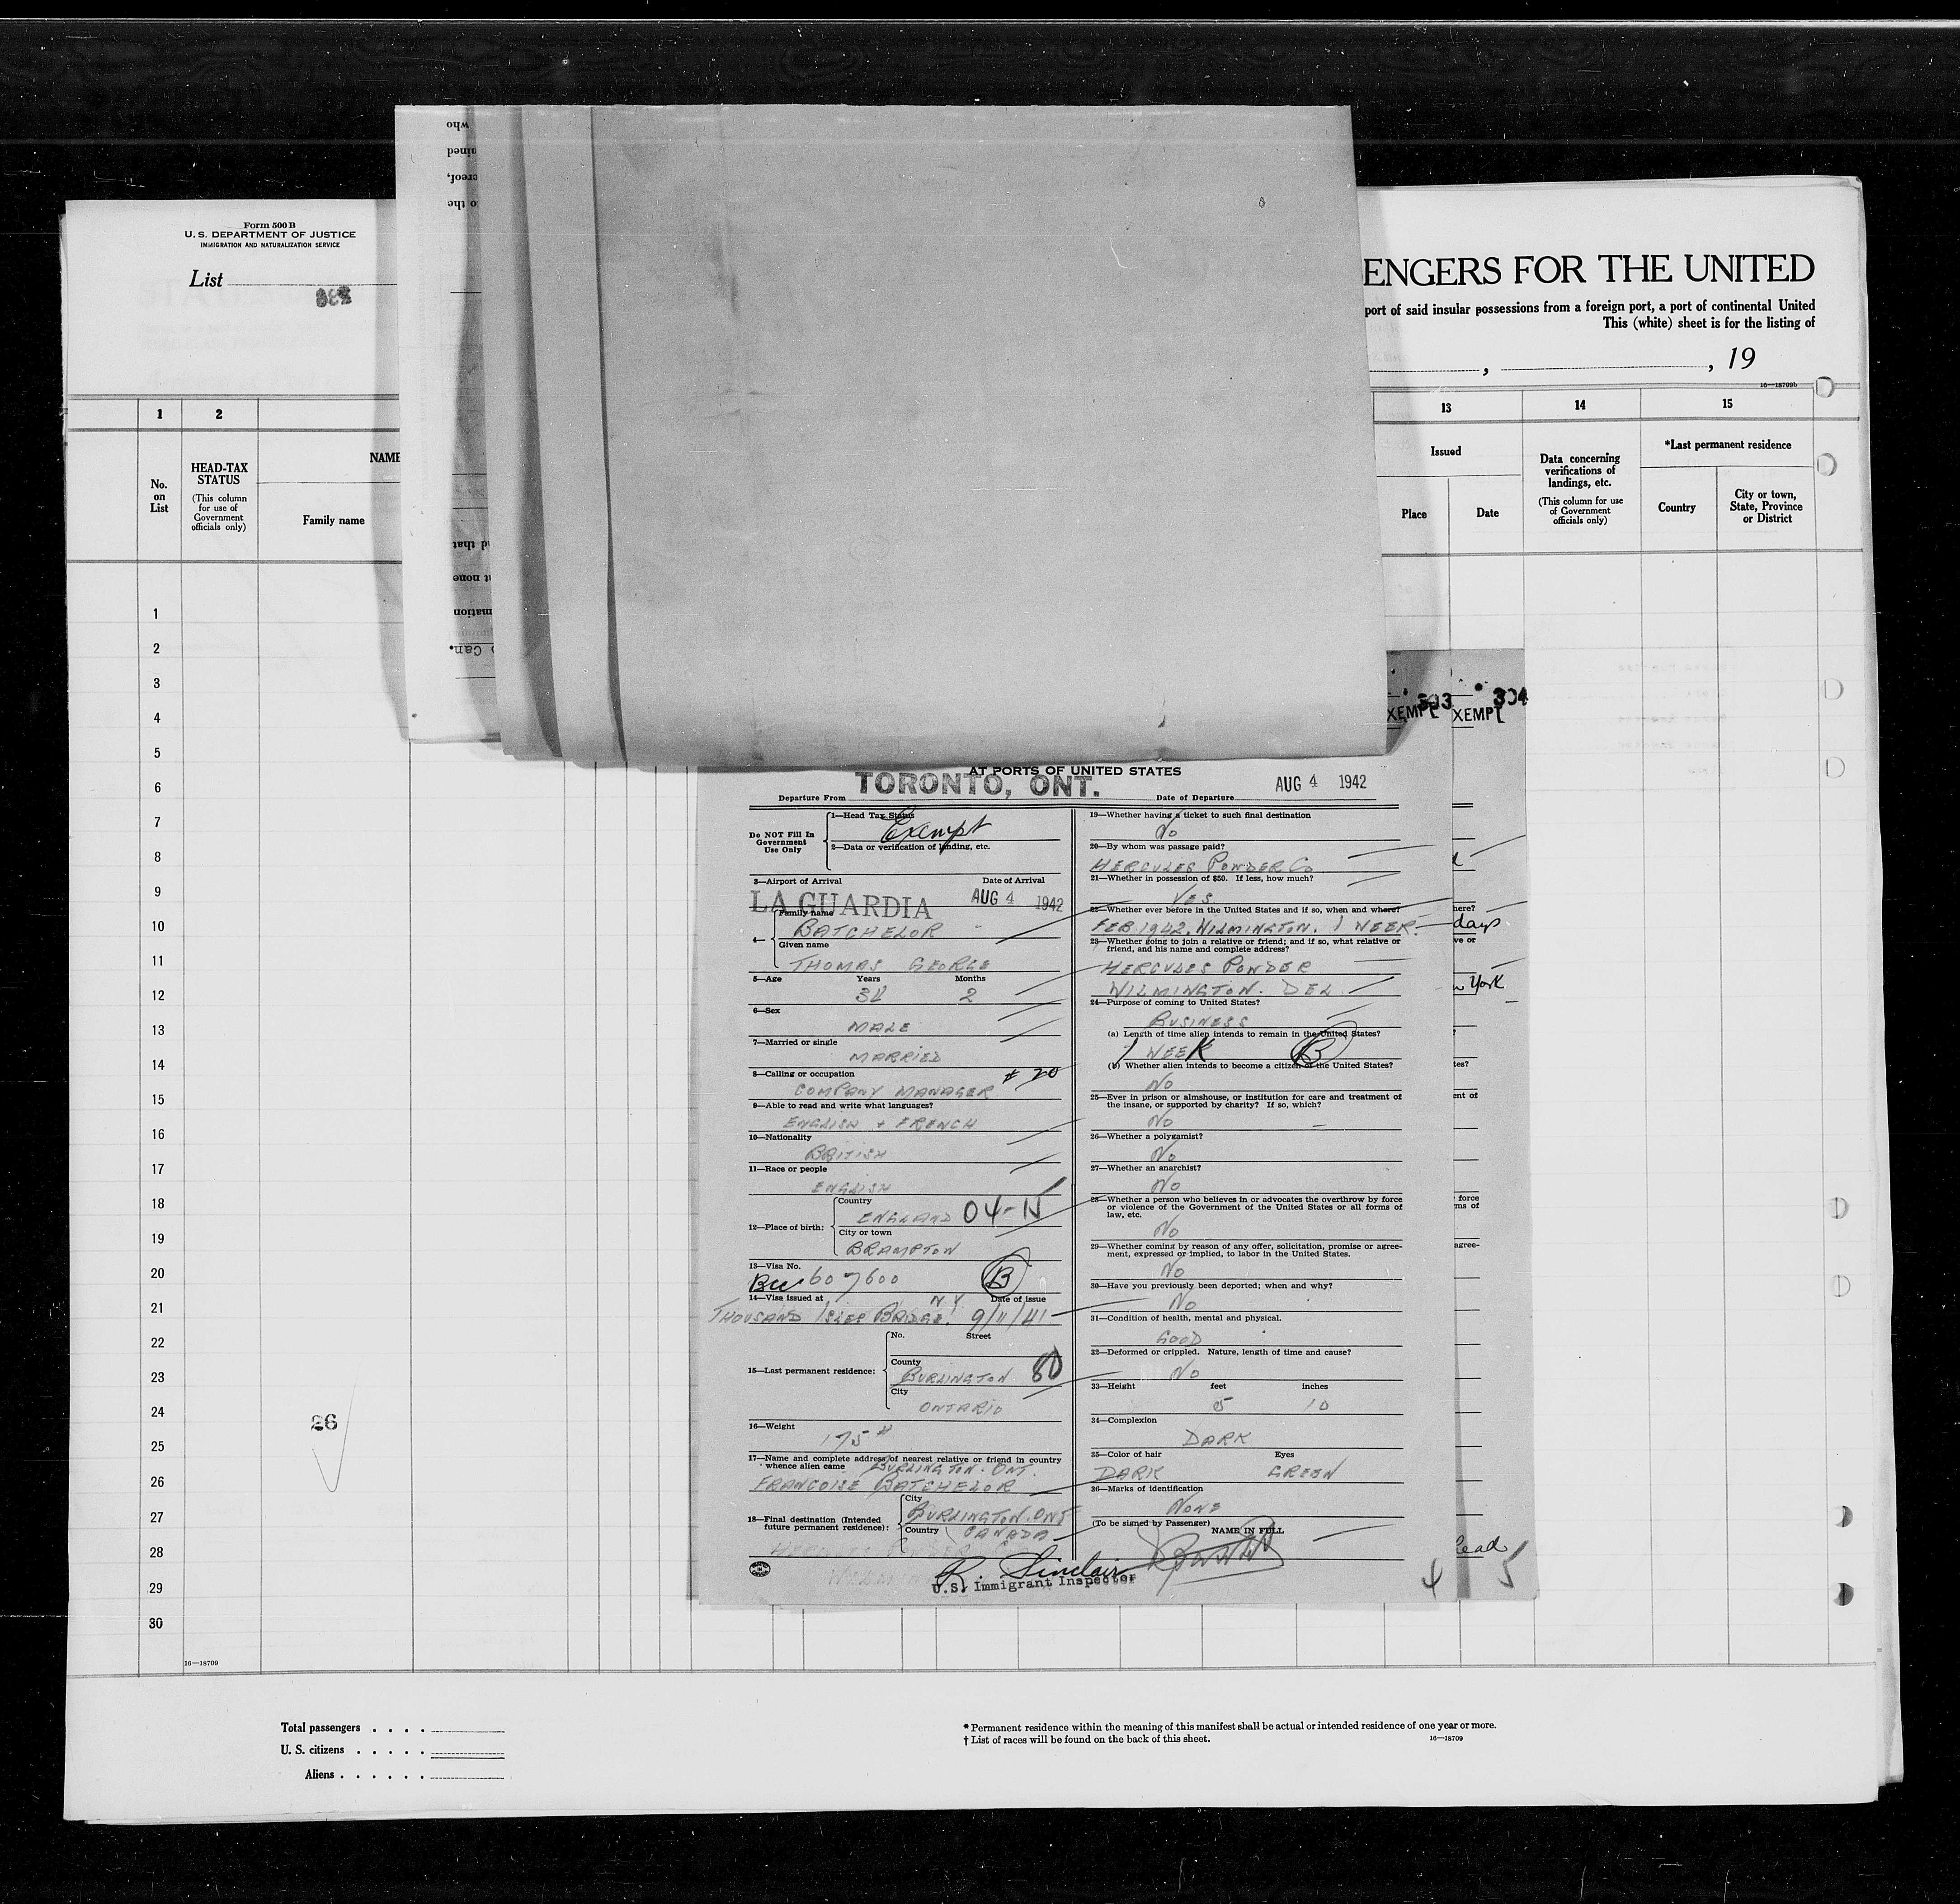 Form 500 B
U. S. DEPARTMENT OF JUSTICE
IMMIGRATION AND NATURALIZATION SERVICE
List
ENGERS FOR THE UNITED
port of said insular possessions from a foreign port, a port of continental United
This (white) sheet is for the listing of
, , 19
16—18709b
1 2 13 14 15
No. on List
HEAD-TAX STATUS
(This column for use of Government officials only)
NAME
Family name
Issued
Place Date
Data concerning verifications of landings, etc.
(This column for use of Government officials only)
*Last permanent residence
Country
City or town, State, Province or District
1
2
3
4
5
6
7
8
9
10
11
12
13
14
15
16
17
18
19
20
21
22
23
24
25
26
27
28
29
30
26
16—18709
304
XEMPT XEMPT
AT PORTS OF UNITED STATES
Departure From TORONTO, ONT. Date of Departure AUG 4 1942
Do NOT Fill In Government Use Only
1—Head Tax Status
Exempt
2—Data or verification of landing, etc.
3—Airport of Arrival Date of Arrival
LA GUARDIA AUG 4 1942
4— Family name
BATCHELOR
Given name
THOMAS GEORGE
5—Age Years Months
2
6—Sex
MALE
7—Married or single
MARRIED
8—Calling or occupation # 20
COMPANY MANAGER
9—Able to read and write what languages?
ENGLISH + FRENCH
10—Nationality
BRITISH
11—Race or people
ENGLISH
12—Place of birth:
Country
ENGLAND
City or town
BRAMPTON
13—Visa No.
607600 B
14—Visa issued at N.Y. Date of issue
THOUSAND ISLES BRIDGE. 9/11/41
15—Last permanent residence:
No. Street
County
BURLINGTON 80
City
ONTARIO
16—Weight
175 #
17—Name and complete address of nearest relative or friend in country
whence alien came BURLINGTON. ONT.
FRANCOISE BATCHELOR
18—Final destination (Intended future permanent residence):
City
BURLINGTON. ONT
Country CANADA
19—Whether having a ticket to such final destination
No
20—By whom was passage paid?
HERCULES POWDER Co
21—Whether in possession of $50. If less, how much?
YES
22—Whether ever before in the United States and if so, when and where?
FEB 1942. WILMINGTON. 1 WEEK.
23—Whether going to join a relative or friend; and if so, what relative or
friend, and his name and complete address?
HERCULES POWDER
WILMINGTON. DEL
24—Purpose of coming to United States?
BUSINESS
(a) Length of time alien intends to remain in the United States?
1 WEEK B
(b) Whether alien intends to become a citizen of the United States?
No
25—Ever in prison or almshouse, or institution for care and treatment of
the insane, or supported by charity? If so, which?
No
26—Whether a polygamist?
No
27—Whether an anarchist?
No
28—Whether a person who believes in or advocates the overthrow by force
or violence of the Government of the United States or all forms of
law, etc.
No
29—Whether coming by reason of any offer, solicitation, promise or agree-
ment, expressed or implied, to labor in the United States.
No
30—Have you previously been deported; when and why?
No
31—Condition of health, mental and physical.
GOOD
32—Deformed or crippled. Nature, length of time and cause?
No
33—Height feet inches
5 10
34—Complexion
DARK
35—Color of hair Eyes
DARK GREEN
36—Marks of identification
NONE
(To be signed by Passenger) NAME IN FULL
R. Sinclair
U.S. Immigrant Inspector
4 5
here?
days
ve or
York
tes?
ent of
force
ms of
agree-
Total passengers . . . .
U. S. citizens . . . . .
Aliens . . . . . .
* Permanent residence within the meaning of this manifest shall be actual or intended residence of one year or more.
† List of races will be found on the back of this sheet. 16—18709